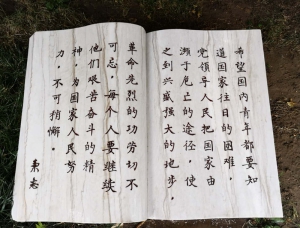 希望国内青年都要知
道国家往日的困难，
党领导人民把国家由
濒于危亡的途径，使
之到兴盛强大的地步，
革命先烈的功劳切不
可忘，每个人要继续
他们艰苦奋斗的精
神，为国家人民努
力，不可稍懈。
秉志